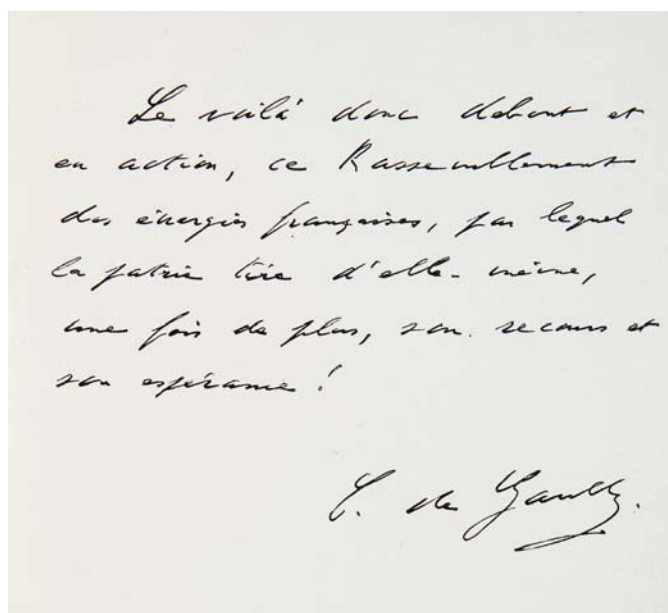 Le voilà donc debout et
en action, ce Rassemblement
des énergies françaises, par lequel
la patrie tire d'elle-même,
une fois de plus, son recours et
son espérance !
C. de Gaulle.